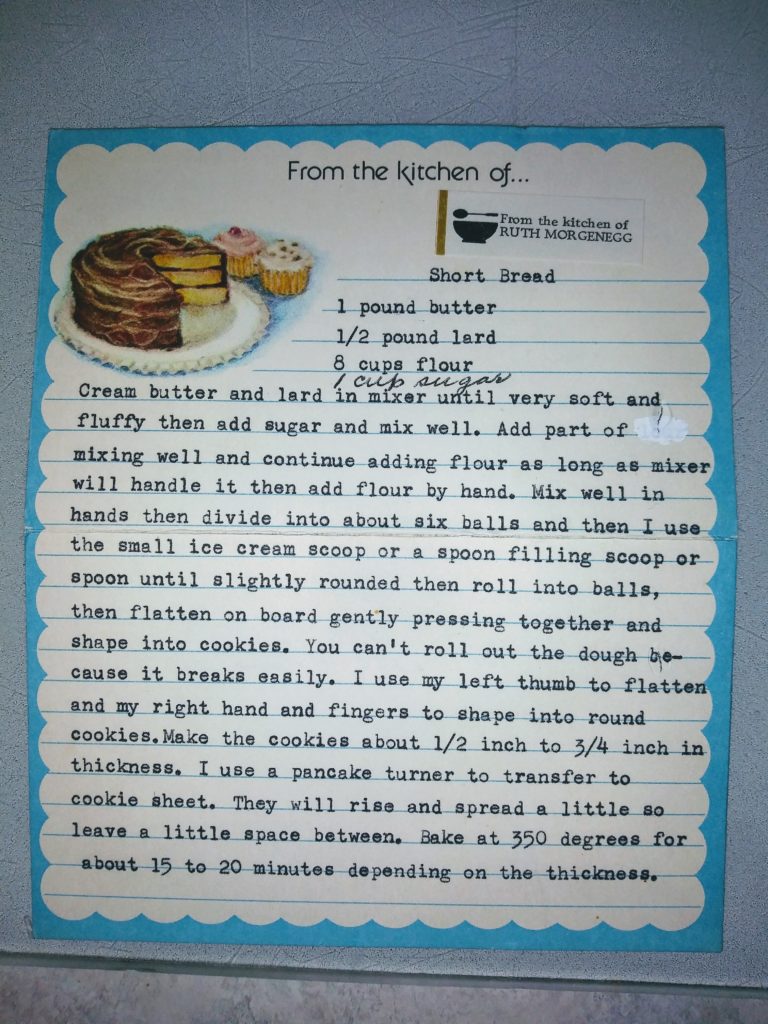 From the kitchen of...
From the kitchen of
RUTH MORGENEGG
Short Bread
1 pound butter
1/2 pound lard
8 cups flour
1 cup sugar
Cream butter and lard in mixer until very soft and
fluffy then add sugar and mix well. Add part of
mixing well and continue adding flour as long as mixer
will handle it then add flour by hand. Mix well in
hands then divide into about six balls and then I use
the small ice cream scoop or a spoon filling scoop or
spoon until slightly rounded then roll into balls,
then flatten on board gently pressing together and
shape into cookies. You can't roll out the dough be-
cause it breaks easily. I use my left thumb to flatten
and my right hand and fingers to shape into round
cookies.Make the cookies about 1/2 inch to 3/4 inch in
thickness. I use a pancake turner to transfer to
cookie sheet. They will rise and spread a little so
leave a little space between. Bake at 350 degrees for
about 15 to 20 minutes depending on the thickness.